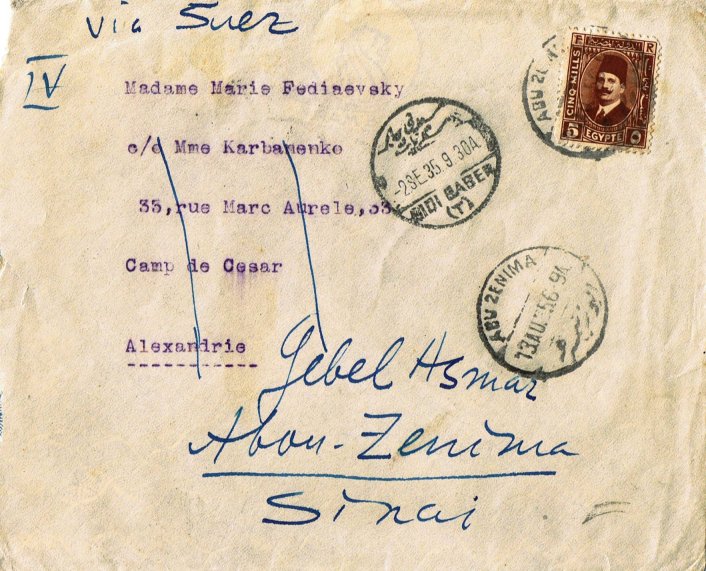 via Suez
IV
Madame Marie Fediaevsky
c/o Mme Karbanenko
33,rue Marc Aurele,33
Camp de Cesar
Alexandrie
Gebel Asmar
Abou-Zenima
Sinai
F R
CINQ MILLS
5
EGYPTE
ABU ZENIMA
-2SE.35.9 30A
SIDI GABER
(٢)
ABU ZENIMA